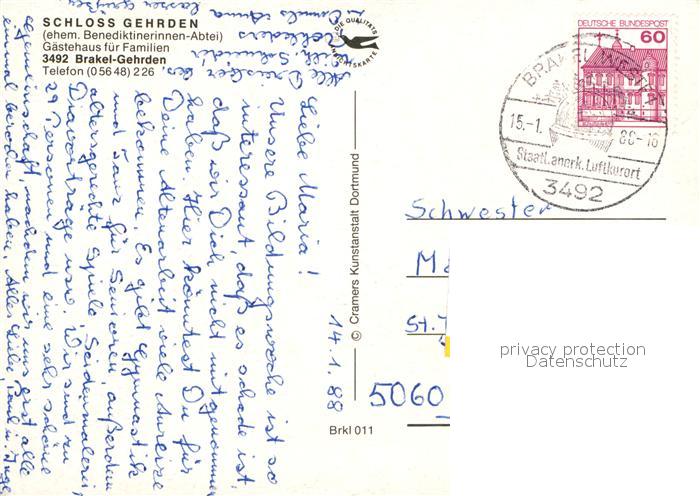 SCHLOSS GEHRDEN
(ehem. Benediktinerinnen-Abtei)
Gästehaus für Familien
3492 Brakel-Gehrden
Telefon (05648) 226
DIE QUALITÄTS
ANSICHTSKARTE
14.1.88
Liebe Maria!
Unsere Bildungswoche ist so
interessant, daß es schade ist,
daß wir Dich nicht mitgenommen
haben. Hier könntest Du für
Deine Altenarbeit viele Anreize
bekommen. Es gibt Gymnastik
und Tanz für Senioren, außerdem
altersgerechte Spiele, Seidenmalerei,
Diavorträge usw. Wir sind zu
29 Personen und eine sehr schöne
Gemeinschaft, nachdem wir uns erst alle
einmal berochen haben. Alles Liebe, Paul u. Inge
© Cramers Kunstanstalt Dortmund
Brkl 011
DEUTSCHE BUNDESPOST
60
BRAKEL, WESTF
15.-1. 88-16
Staatl. anerk. Luftkurort
3492
Schwester
M
St.
5060
privacy protection
Datenschutz